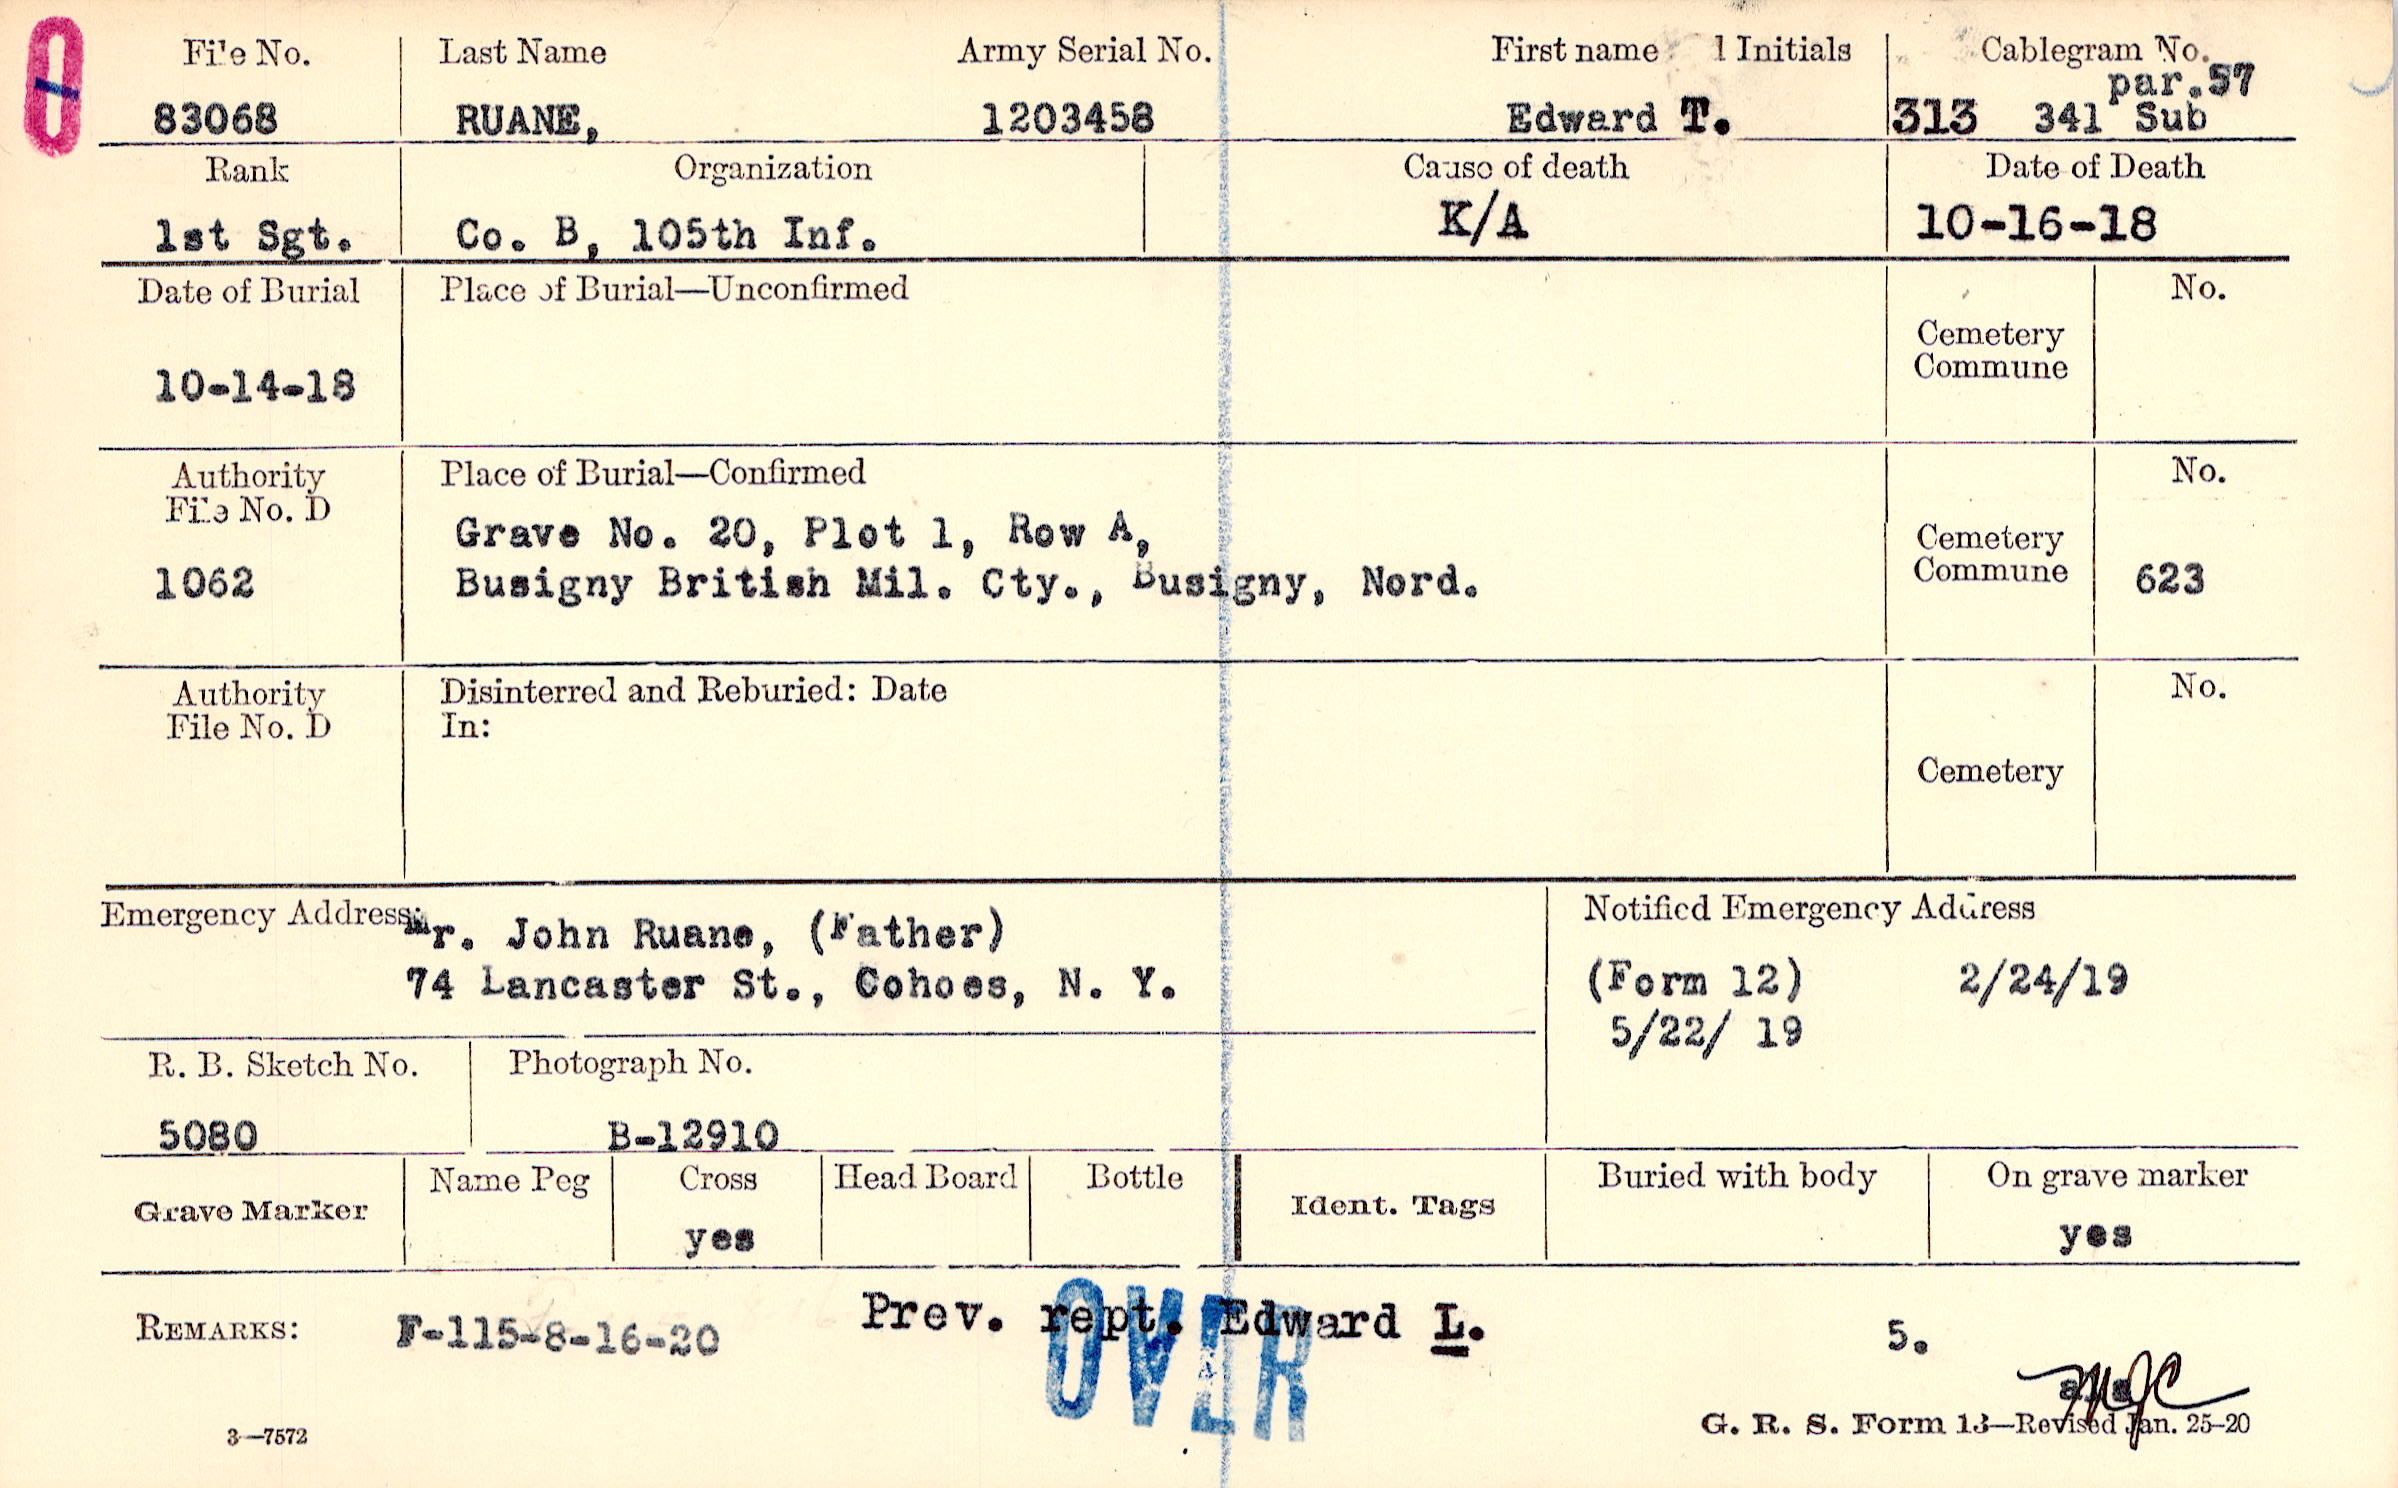 File No. Last Name Army Serial No. First name 1 Initials Cablegram No.
par.57
83068 RUANE, 1203458 Edward T. 313 341 Sub
Rank Organization Cause of death Date of Death
1st Sgt. Co. B, 105th Inf. K/A 10-16-18
Date of Burial Place of Burial—Unconfirmed No.
Cemetery
Commune
10-14-18
Authority Place of Burial—Confirmed No.
File No. D
Grave No. 20, Plot 1, Row A, Cemetery
1062 Busigny British Mil. Cty., Busigny, Nord. Commune 623
Authority Disinterred and Reburied: Date No.
File No. D In:
Cemetery
Emergency Address: Mr. John Ruane, (Father) Notified Emergency Address
74 Lancaster St., Cohoes, N. Y. (Form 12) 2/24/19
5/22/ 19
R. B. Sketch No. Photograph No.
5080 B-12910
Grave Marker Name Peg Cross Head Board Bottle Ident. Tags Buried with body On grave marker
yes yes
REMARKS: F-115-8-16-20 Prev. rept. Edward L. 5.
OVER
3—7572 G. R. S. Form 13—Revised Jan. 25-20